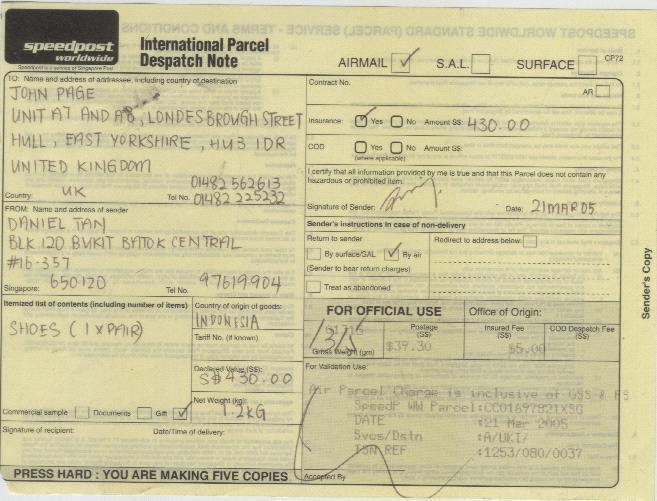 speedpost
worldwide
Speedpost is a service of Singapore Post
International Parcel
Despatch Note
AIRMAIL
S.A.L.
SURFACE
CP72
TO: Name and address of addressee, including country of destination
JOHN PAGE
UNIT A7 AND A8, LONDESBROUGH STREET
HULL, EAST YORKSHIRE, HU3 1DR
UNITED KINGDOM
01482 562613
Country: UK Tel No. 01482 225232
Contract No.
AR
Insurance: Yes No Amount S$: 430.00
COD Yes No Amount S$:
(where applicable)
I certify that all information provided by me is true and that this Parcel does not contain any
hazardous or prohibited item.
Signature of Sender: Date: 21MAR05
FROM: Name and address of sender
DANIEL TAN
BLK 120 BUKIT BATOK CENTRAL
#16-357
Singapore: 650120 Tel No. 97619904
Sender's instructions in case of non-delivery
Return to sender
By surface/SAL By air
(Sender to bear return charges)
Treat as abandoned
Redirect to address below:
Itemized list of contents (including number of items)
SHOES (1 X PAIR)
Country of origin of goods:
INDONESIA
Tariff No. (if known)
Declared Value (S$):
S$430.00
Net Weight (kg):
1.2KG
Commercial sample Documents Gift
Signature of recipient: Date/Time of delivery:
FOR OFFICIAL USE
Office of Origin:
Gross Weight (gm)
Postage
(S$)
$39.30
Insured Fee
(S$)
$5.00
COD Despatch Fee
(S$)
For Validation Use:
Air Parcel Charge is inclusive of GSS & FS
SpeedP WW Parcel:CC01697821XSG
DATE :21 Mar 2005
Svcs/Dstn :A/UKI/
TSN REF :1253/080/0037
Accepted By
PRESS HARD : YOU ARE MAKING FIVE COPIES
Sender's Copy